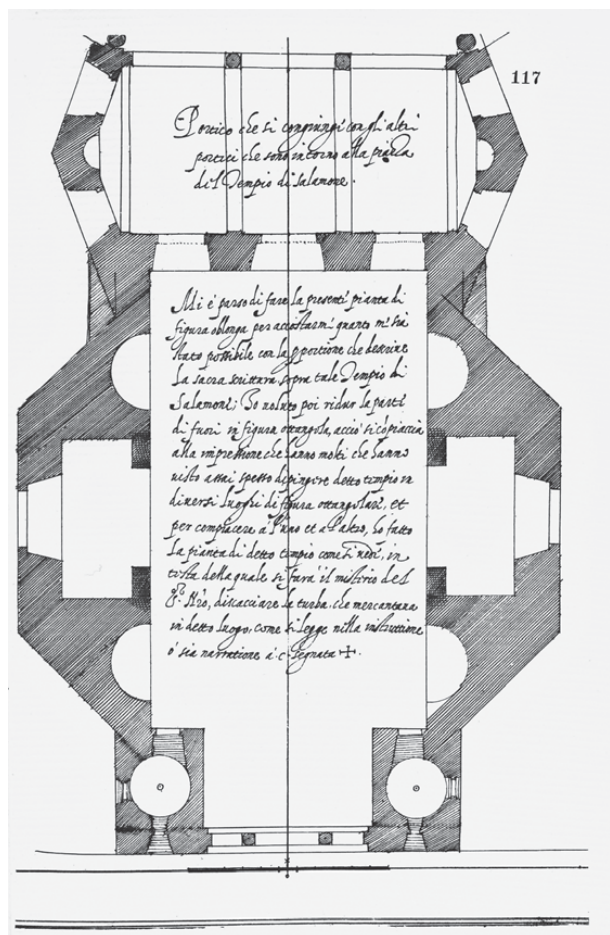 117
Portico che si congiungi con gli altri
portici che sono intorno alla piazza
del Tempio di Salamone.
Mi è parso di fare la presente pianta di
figura oblonga per accostarmi quanto mi sia
stato possibile con la pportione che descrive
la sacra scrittura sopra tale Tempio di
Salamone; Io voluto poi ridur la parte
di fuori in figura ottangola, acciò si copiaccia
alla impressione che hanno molti che hanno
visto assai spesso dipingere detto tempio in
diversi luoghi di figura ottangolare, et
per compiacere a l'uno et a l'altro, ho fatto
la pianta di detto tempio come si vede, in
testa della quale si farà il misterio del
discacciare la turba, che mercantava
in detto luogo, come si legge nella instruttione
o sia narratione a c. segnata ✝.